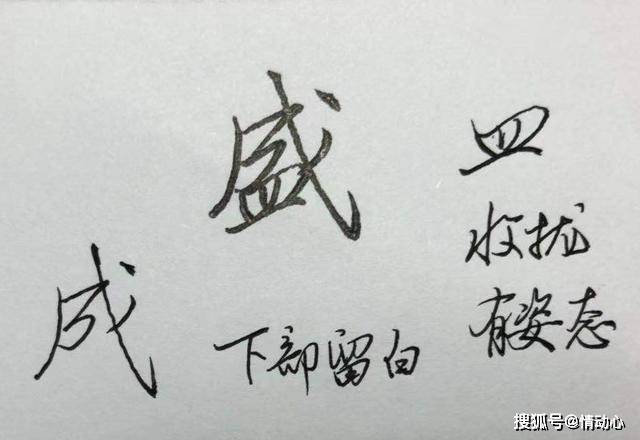 盛
皿
收拢
有姿态
成
下部留白
搜狐号@情动心